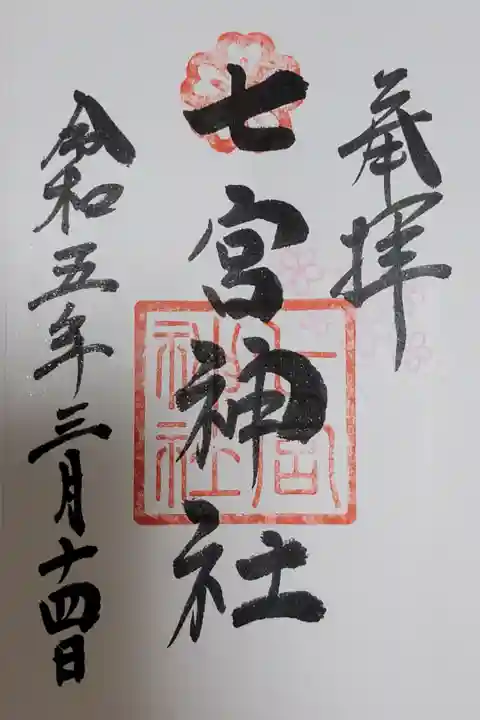 奉拝
七宮神社
令和五年三月十四日